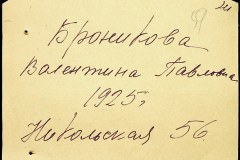 Броникова
Валентина Павловна
1925г
Никольская 56.